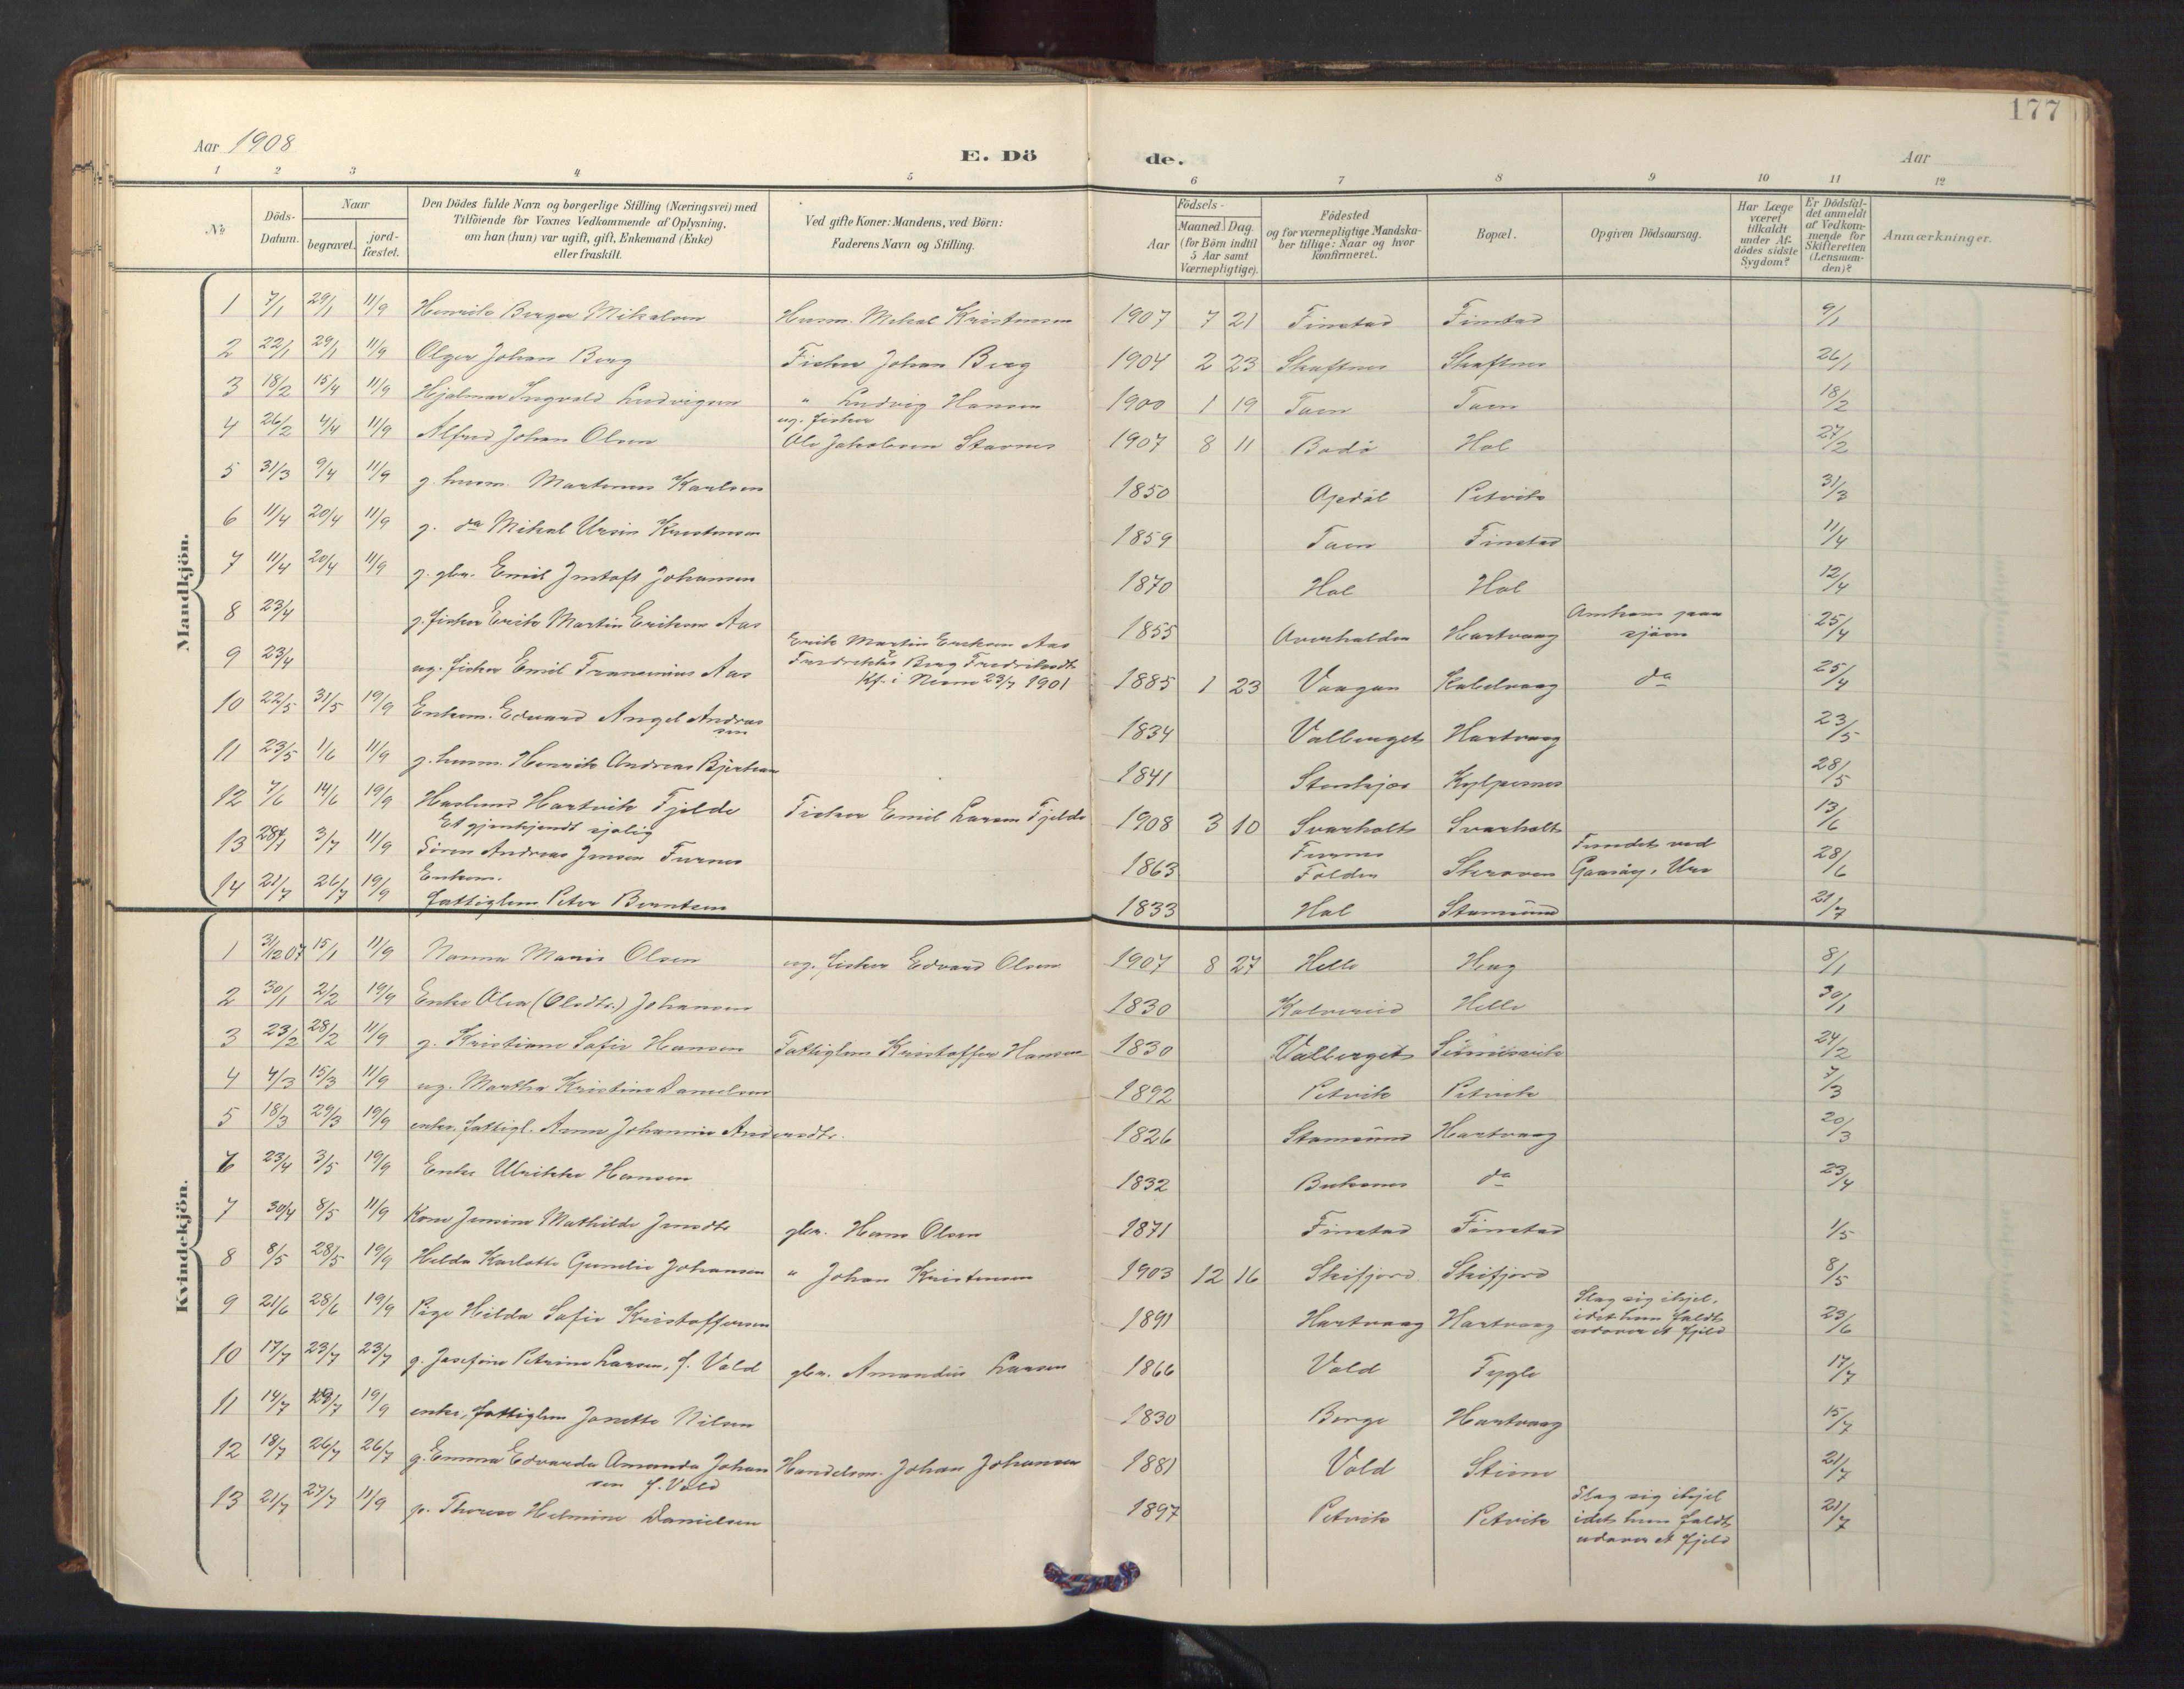 177
Aar 1908
E. Dö de.
Aar
1 2 3 4 5 6 7 8 9 10 11 12
No
Döds-Datum.
Naar
begravet.
jord-fæstet.
Den Dödes fulde Navn og borgerlige Stilling (Næringsvei) med
Tilföiende for Voxnes Vedkommende af Oplysning,
om han (hun) var ugift, gift, Enkemand (Enke)
eller fraskilt.
Ved gifte Koner: Mandens, ved Börn:
Faderens Navn og Stilling.
Aar
Födsels-
Maaned. Dag.
(for Börn indtil
5 Aar samt
Værnepligtige).
Födested
og for værnepligtige Mandska-
ber tillige: Naar og hvor
konfirmeret.
Bopæl.
Opgiven Dödsaarsag.
Har Læge
været
tilkaldt
under Af-
dödes sidste
Sygdom?
Er Dödsfal-
det anmeldt
af Vedkom-
mende for
Skifteretten
(Lensman-
den)?
Anmærkninger.
Mandkjön.
1 7/1 29/1 11/9 Henrik Berger Mikalsen Husm. Mikal Kristensen 1907 7 21 Finstad Finstad 9/1
2 22/1 29/1 11/9 Olger Johan Berg Fisker Johan Berg 1904 2 23 Skaftnes Skaftnes 26/1
3 18/2 15/4 11/9 Hjalmar Ingvald Ludvigsen " Ludvig Hansen 1900 1 19 Taen Taen 18/2
4 26/2 4/4 11/9 Alfred Johan Olsen ug. fisker Ole Jakobsen Stavnes 1907 8 11 Bodö Hol 27/2
5 31/3 9/4 11/9 g. husm. Martinus Karlsen 1850 Opdöl Petvik 31/3
6 11/4 20/4 11/9 g. do Mikal Ursin Kristensen 1859 Taen Finstad 11/4
7 11/4 20/4 11/9 g. gbr. Emil Johansen 1870 Hol Hol 12/4
8 23/4 g. fisker Erik Martin Eriksen Aas 1855 Overhalden Hartvaag Omkom paa sjöen 25/4
9 23/4 ug. fisker Emil Fransenius Aas Erik Martin Eriksen Aas Fredrikke Berg Fredriksdtr Kf. i 23/7 1901 1885 1 23 Vaagan Kabelvaag do 25/4
10 22/5 31/5 19/9 Enkem. Edvard Angel Andreassen 1834 Valberget Hartvaag 23/5
11 23/5 1/6 11/9 g. husm. Henrik Andreas 1841 Stenkjær Kylpesnes 28/5
12 7/6 14/6 19/9 Haslund Hartvik Fjelde Fisker Emil Larsen Fjelde 1908 3 10 Svarholt Svarholt 13/6
13 28/ 3/7 11/9 Et gjenkjendt sjölig Sören Andreas Jensen Furnes 1863 Furnes Folden Skroven Fundet ved Gaasöy, Ure 28/6
14 21/7 26/7 19/9 Enkem. fattiglem Peter Berntsen 1833 Hol Stamsund 21/7
Kvindekjön.
1 31/12 07 15/1 11/9 Nanna Marie Olsen ug. fisker Edvard Olsen 1907 8 27 Helle Haug 8/1
2 30/1 2/2 19/9 Enke Olea (Olsdtr.) Johansen 1830 Helle 30/1
3 23/2 28/2 11/9 g. Kristiane Sofie Hansen Fattiglem Kristoffer Hansen 1830 Valberget 24/2
4 4/3 15/3 11/9 ug. Martha Kristine Danielsen 1892 Petvik Petvik 7/3
5 18/3 29/3 19/9 enke, fattigl. Anna Johanna Andersdtr. 1826 Stamsund Hartvaag 20/3
6 23/4 3/5 19/9 Enke Ulrikke Hansen 1832 Buksnes do 23/4
7 30/4 8/5 11/9 Kone Jensine Mathilde Jensdtr gbr. Hans Olsen 1871 Finstad Finstad 1/5
8 8/5 28/5 19/9 Helda Karlotte Gunelie Johansen " Johan Kristensen 1903 12 16 Skifjord Skifjord 8/5
9 21/6 28/6 19/9 Pige Hilda Sofie Kristoffersen 1891 Hartvaag Hartvaag Slog sig ihjel, idet hun faldt udover et fjeld 23/6
10 17/7 23/7 23/7 g. Josefine Petrine Larsen, f. Vold gbr. Amandus Larsen 1866 Vold Tygle 17/7
11 14/7 19/7 19/9 enke, fattiglem Janette Nilsen 1830 Borge Hartvaag 15/7
12 18/7 26/7 26/7 g. Emma Edvarda Amanda Johansen f. Vold Handelsm. Johan Johansen 1881 Vold Steine 21/7
13 21/7 27/7 11/9 p. Therese Helmine Danielsen 1897 Petvik Petvik Slog sig ihjel idet hun faldt udover et fjeld 21/7